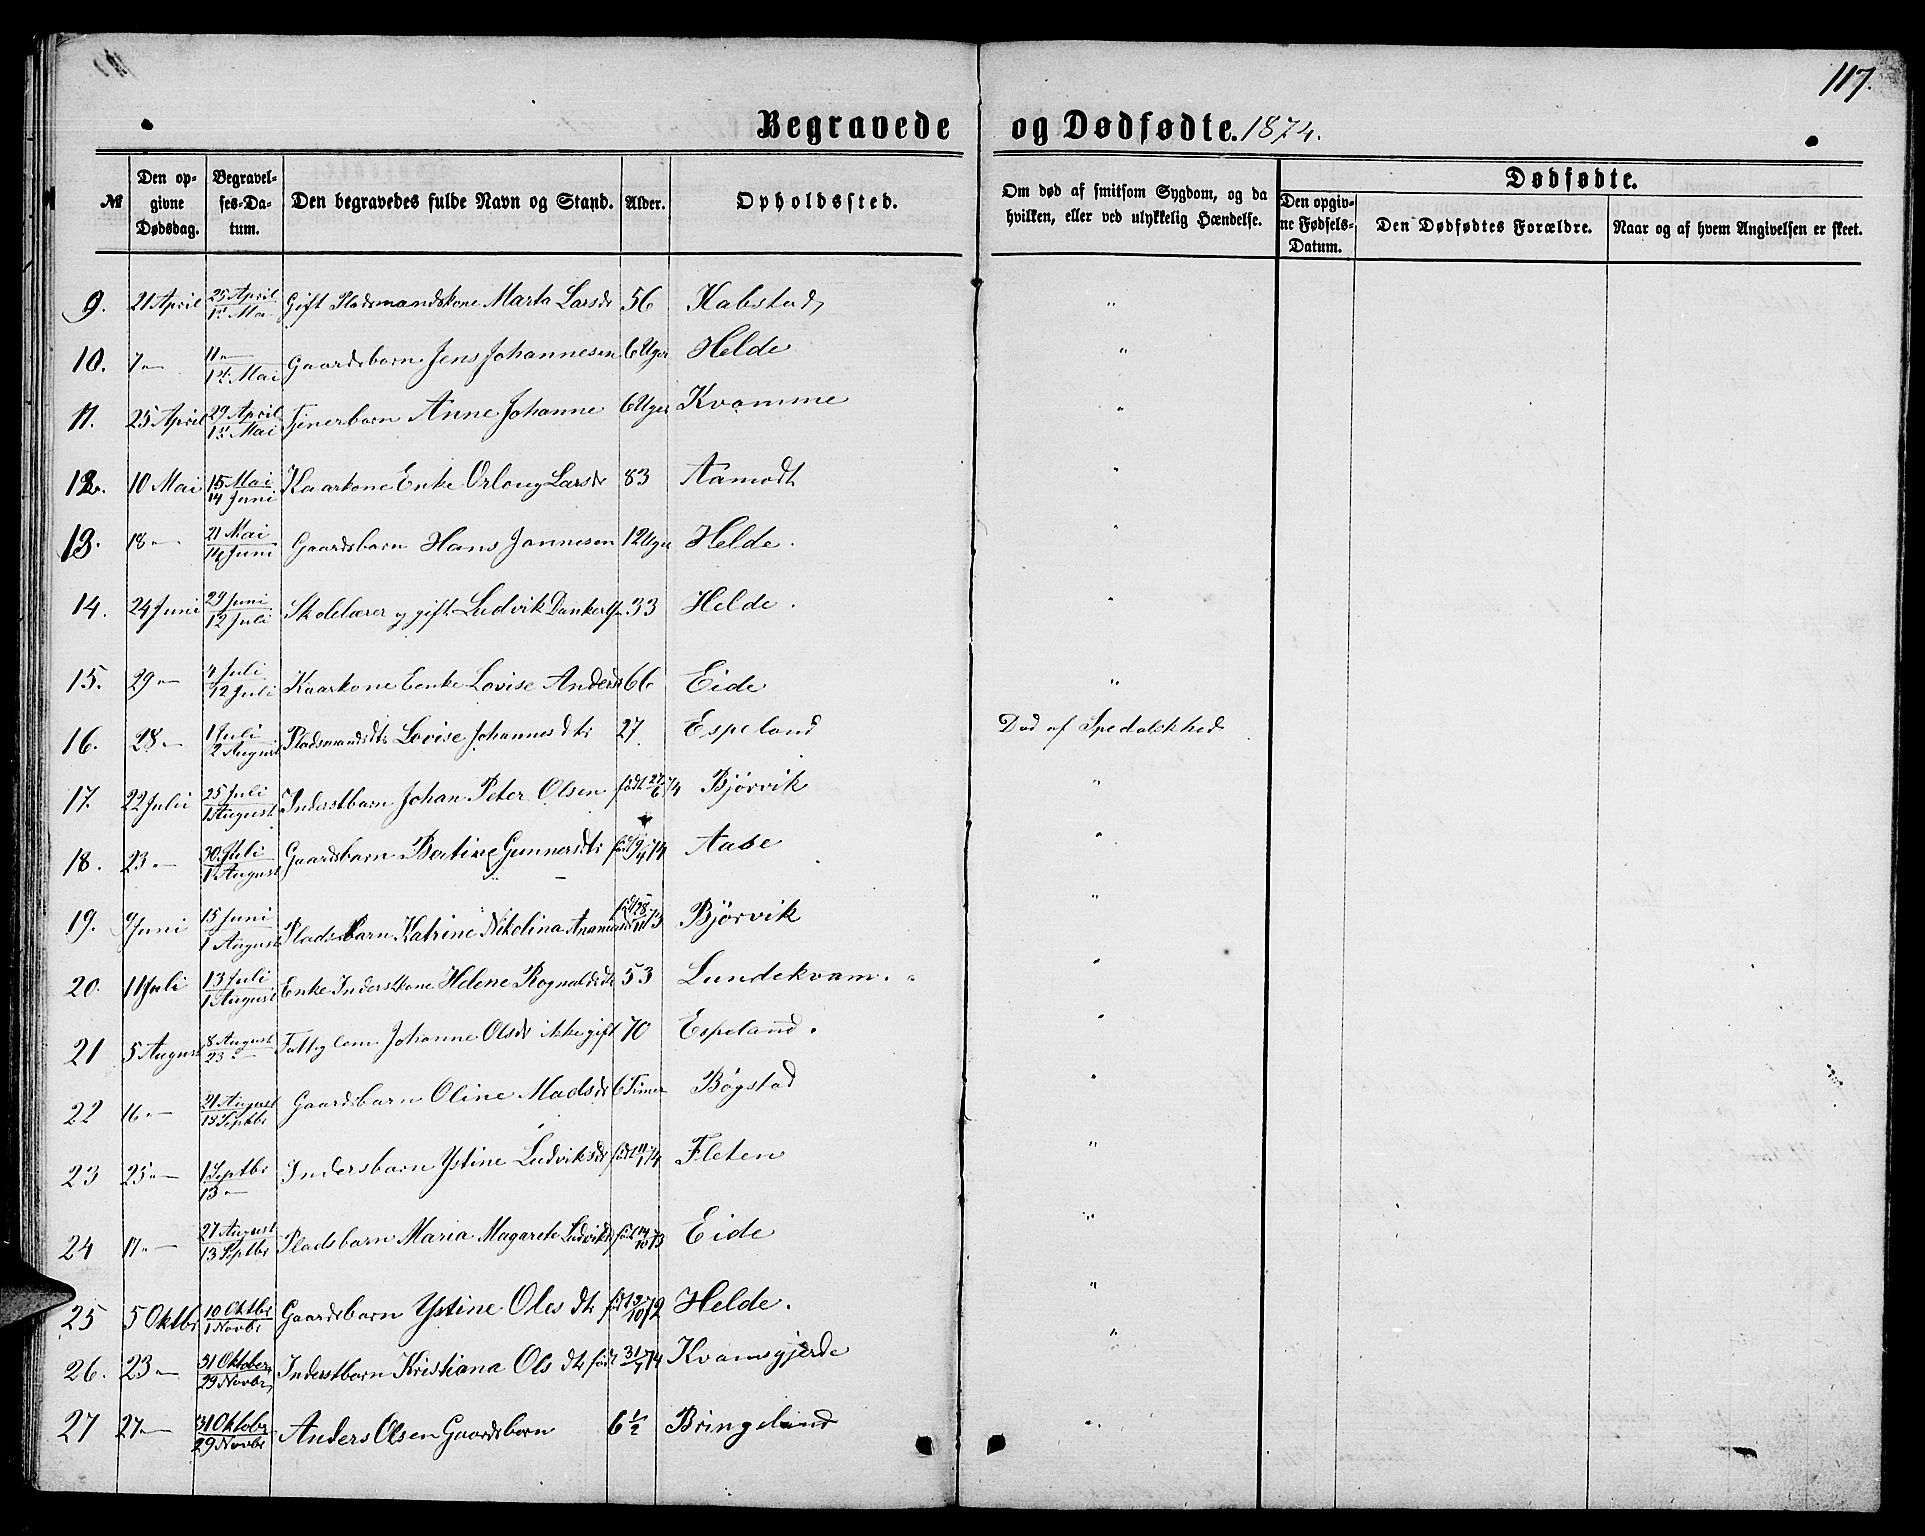 117.
Begravede og Dødfødte. 1874.
№
Den opgivne Dødsdag.
Begravelses-Datum.
Den begravedes fulde Navn og Stand.
Alder.
Opholdssted.
Om død af smitsom Sygdom, og da hvilken, eller ved ulykkelig Hændelse.
Dødfødte.
Den opgivne Fødsels-Datum.
Den Dødfødtes Forældre.
Naar og af hvem Angivelsen er skeet.
9. 21 April 25 April 1ste Mai Gift Pladsmandskone Marta Larsdr 56 Kabstad "
10. 7 " 11 " 1ste Mai Gaardsbarn Jens Johannesen 6 Uger Helde "
11. 25 April 29 April 1ste Mai Tjenerbarn Anne Johanne 6 Uger Kvamme "
12. 10 Mai 15 Mai 14 Juni Kaarkone Enke Orloug Larsdr 83 Aamodt "
13. 18 " 21 Mai 14 Juni Gaardsbarn Hans Jannesen 12 Uger Helde. "
14. 24 Juni 29 Juni 12 Juli Skolelærer og gift Ludvik Dankertsen 33 Helde. "
15. 29 " 4 Juli 12 Juli Kaarkone Eenke Lovise Andersdr 66 Eide "
16. 28 " 1 Juli 2 August Pladsmandsdtr Lovise Johannesdtr 27. Espeland Død af Spedalskhed
17. 22 Juli 25 Juli 1 August Inderstbarn Johan Peter Olsen født 27/6 74 Bjørvik "
18. 23 " 30 Juli 1 August Gaardsbarn Bertine Gunnersdtr født 9/4 74 Aase "
19. 9 Juni 15 Juni 1 August Pladsbarn Katrine Nikolina født 28/11 73 Bjørvik "
20. 11 Juli 13 Juli 1 August Enke Inderstkone Helene Rognaldsdtr 53 Lundekvam. "
21 5 August 8 August 23 " Fattiglem Johanne Olsdr ikke gift 70 Espeland. "
22 16 " 21 August 13 Septbr Gaardsbarn Oline Madsdr 6 Timer Bøgstad "
23 25 " 1 Septbr 13 " Indersbarn Ystine Ludviksdr født 11/1 74 Fleten "
24 17 " 27 August 13 Septbr Pladsbarn Maria Magarete Ludvikdr født 14/10 73 Eide "
25 5 Oktbr 10 Oktbr 1 Novbr Gaardsbarn Ystine Oles dtr født 19/10 72 Helde. "
26. 23 " 31 Oktober 29 Novbr Inderstbarn Kristiana Ols dtr født 31/7 74 Kvamsgjerde "
27 27 " 31 Oktobr 29 Novbr Anders Olsen Gaardsbarn 6 1/2 Bringeland "